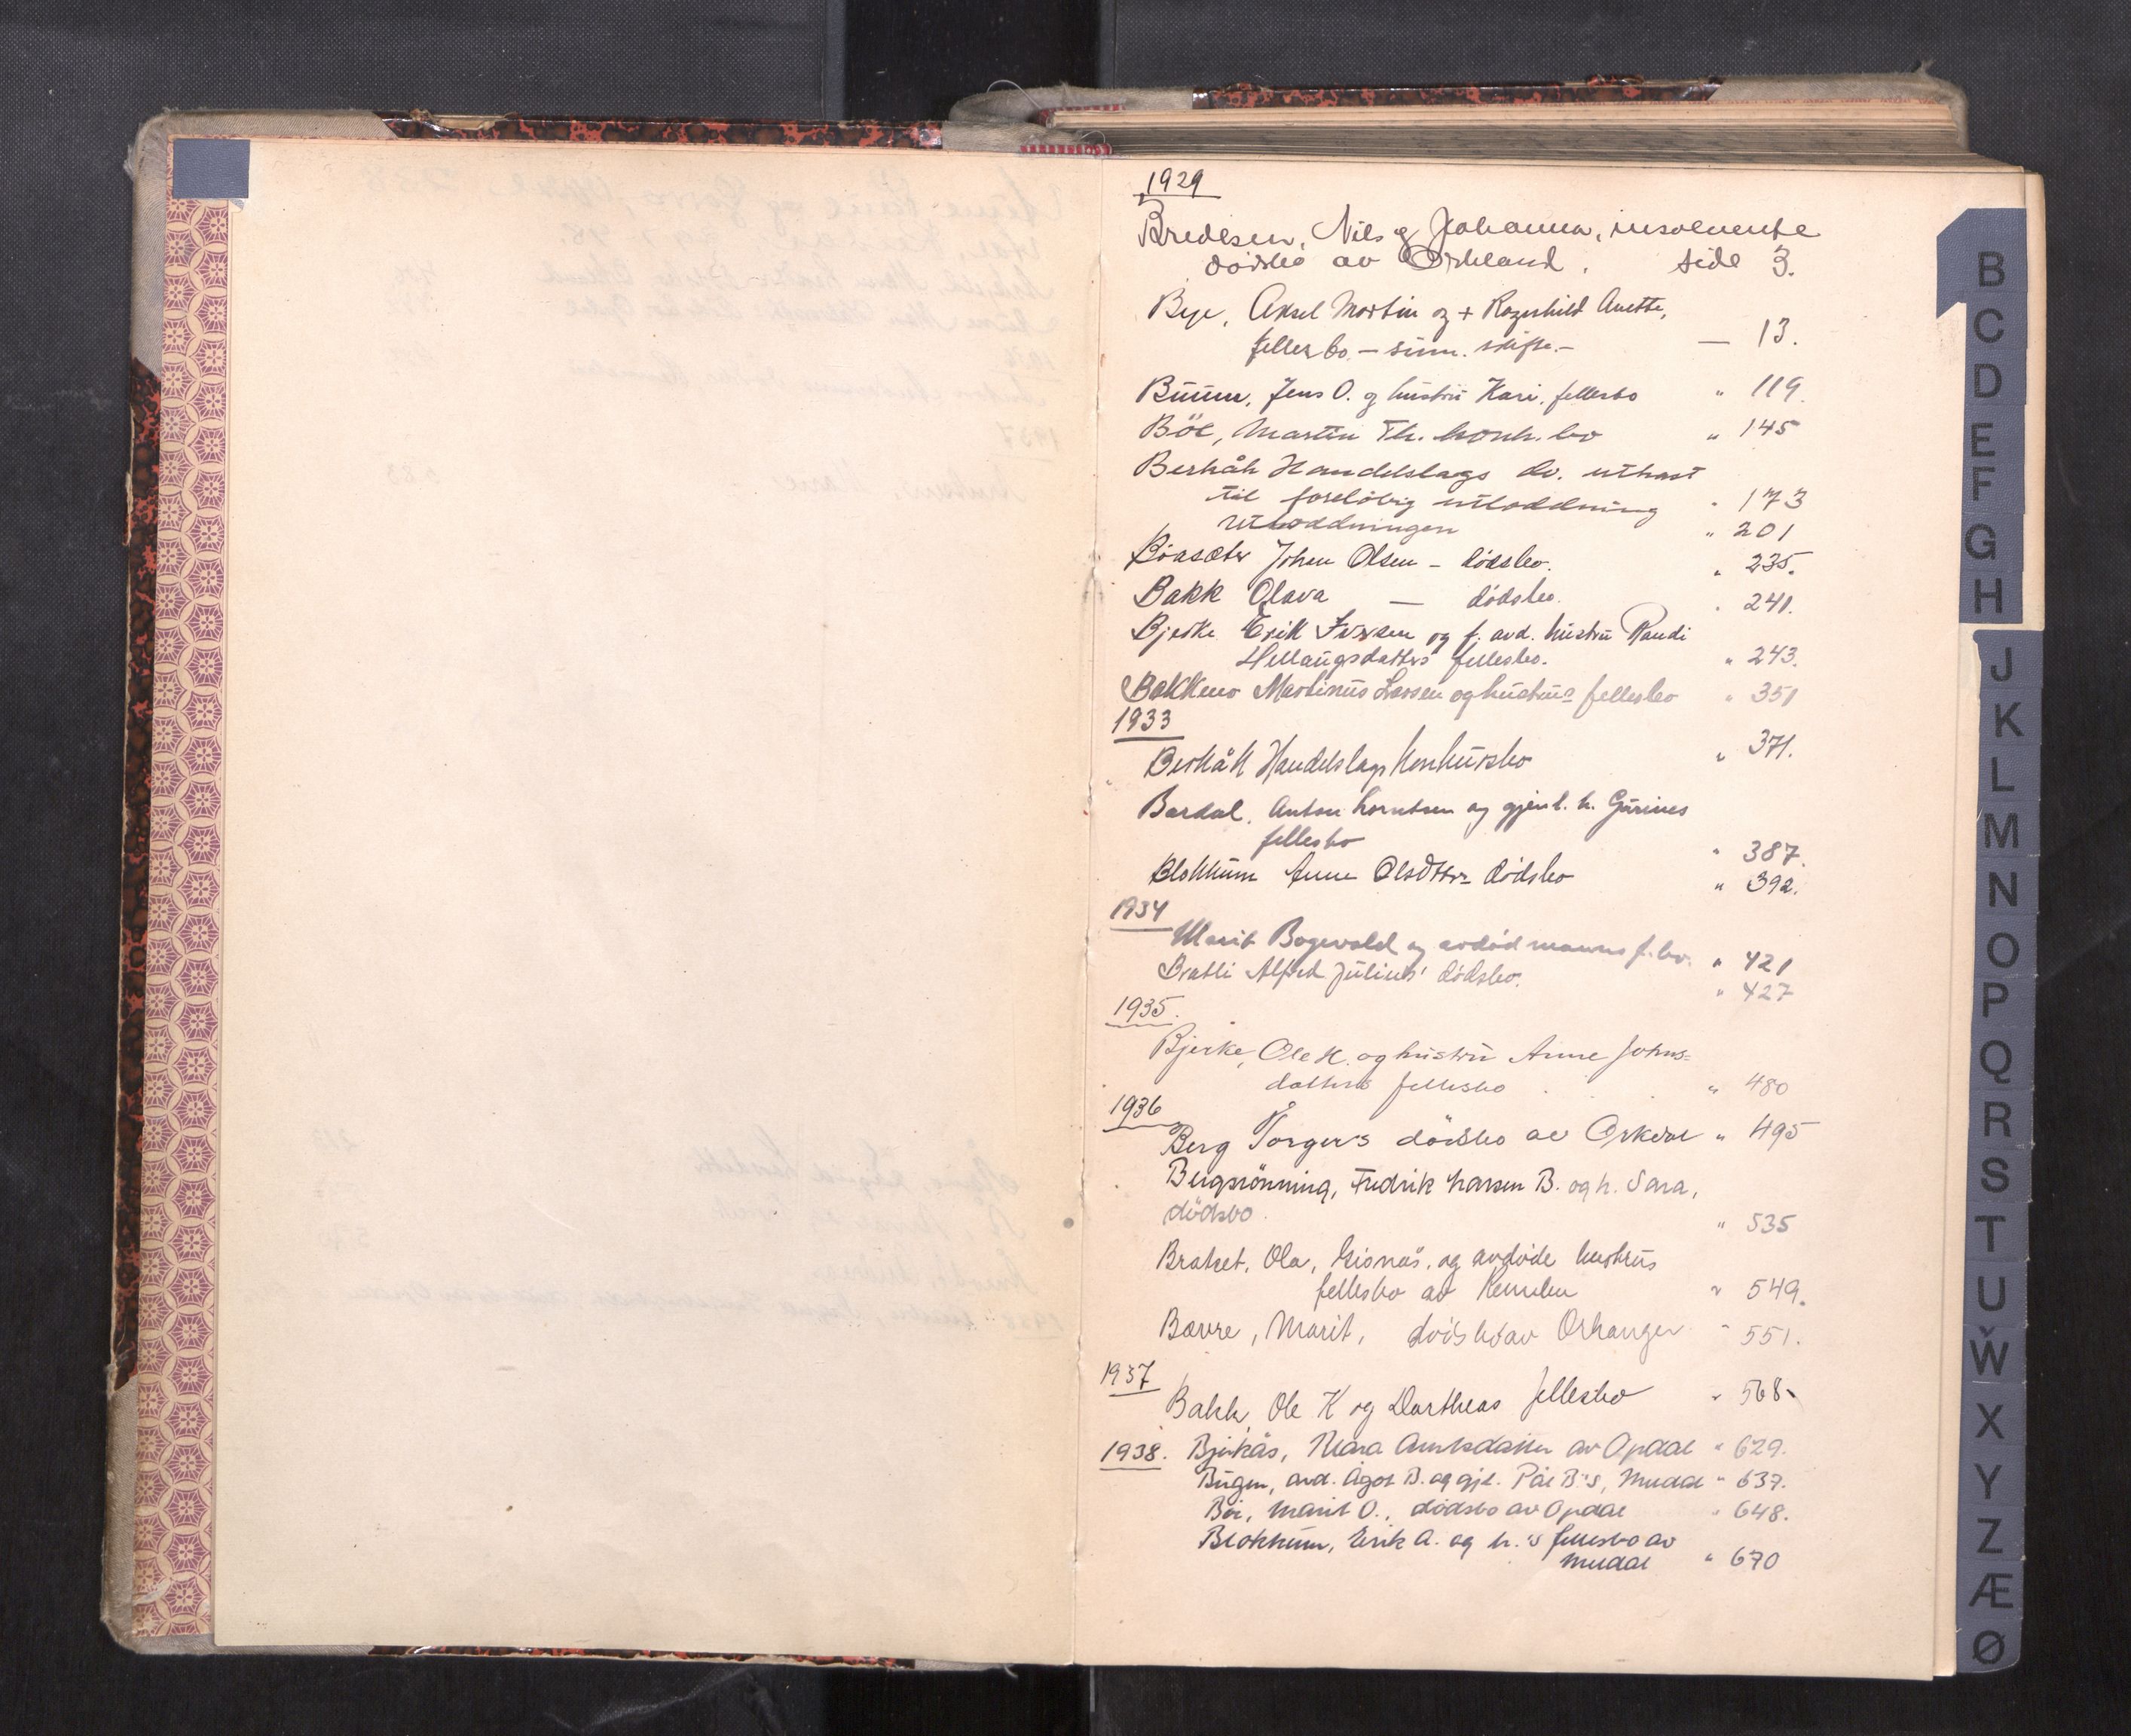 1929
Bredesen, Nils og Johanna, insolvente
dødsbo av Orkland. side 3.
Bye, Aksel Martin og + Ragnhild Anette,
fellesbo. — summ. skifte. — — 13.
Buum, Jens O. og hustru Kari, fellesbo " 119.
Böe, Martin Th. konk. bo " 145
Berkåk Handelslags bo. utkast
til foreløbig utloddning " 173
Utloddningen " 201
Johan Olsen – dødsbo. " 235.
Bakk Olava — dødsbo. " 241.
Bjerke Erik Iversen og f. avd. hustru Randi
fellesbo. " 243.
Bakkmo Martinus Larsen og hustrus fellesbo " 351
1933
Berkåk Handelslags Konkursbo " 371.
Bardal, Anton Lorntsen og gjenl. h. Gurines
fellesbo " 387.
Blokkum Anne Olsdtrs dødsbo " 392.
1934
Marit Bogevold og avdød manns f.bo. " 421
Bratli Alfred Julius' dødsbo. " 427
1935.
Bjerke, Ole H. og hustru Anne Johns=
datters fellesbo " 480
1936
Berg Torger's dödsbo av Orkdal " 495
Bergsrönning, Fredrik Larsen B. og h. Sara,
dödsbo. " 535
Brattset, Ola, Gisnås, og avdöde hustrus
fellesbo av Rennebu " 549.
Bævre, Marit, dödsbo av Orkanger " 551.
1937
Bakk, Ole K og Dortheas fellesbo " 568.
1938. Bjerkås, Mara Arntsdatter av Opdal " 629.
Bugen, avd. Ågot B. og gjl. Pål B's, Meldal " 637.
Bøe, Marit O., dødsbo av Opdal " 648.
Blokkum, Erik A. og h.'s fellesbo av
Meldal " 670
B
C
D
E
F
G
H
J
K
L
M
N
O
P
Q
R
S
T
U
W
X
Y
Z
Æ
Ø